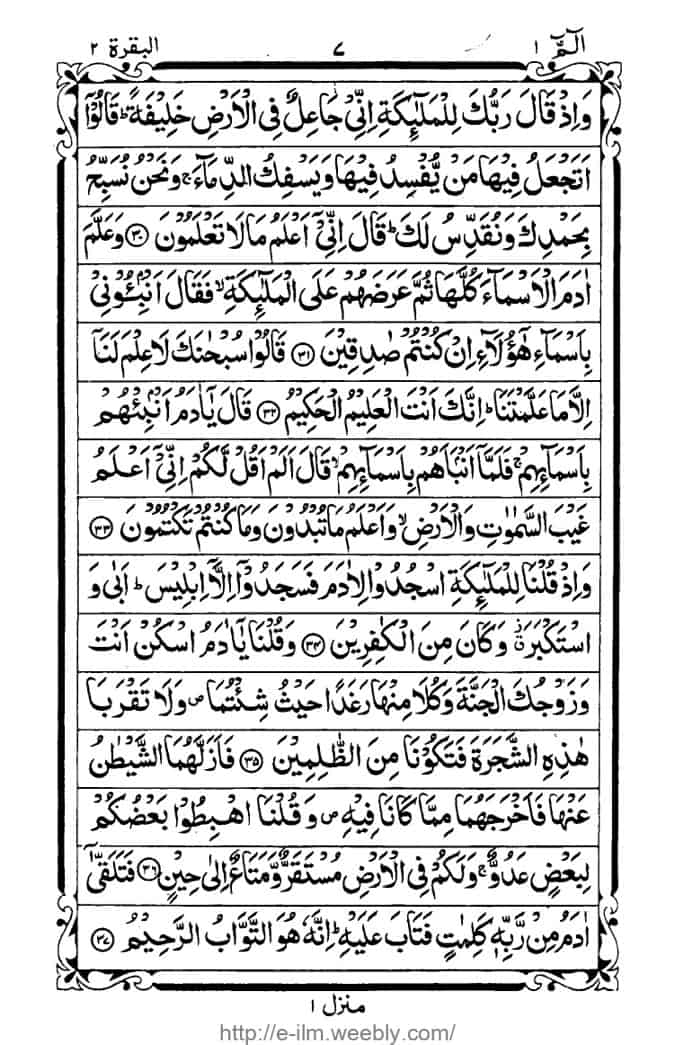 الٓمّٓ ١ ٧ البقرة ٢
وَاِذْ قَالَ رَبُّكَ لِلْمَلٰٓئِكَةِ اِنِّيْ جَاعِلٌ فِي الْاَرْضِ خَلِيْفَةً ؕ قَالُوْٓا
اَتَجْعَلُ فِيْهَا مَنْ يُّفْسِدُ فِيْهَا وَيَسْفِكُ الدِّمَآءَ ۚ وَنَحْنُ نُسَبِّحُ
بِحَمْدِكَ وَنُقَدِّسُ لَكَ ؕ قَالَ اِنِّيْٓ اَعْلَمُ مَا لَا تَعْلَمُوْنَ ﴿٣٠﴾ وَعَلَّمَ
اٰدَمَ الْاَسْمَآءَ كُلَّهَا ثُمَّ عَرَضَهُمْ عَلَى الْمَلٰٓئِكَةِ ۙ فَقَالَ اَنْۢبِـُٔوْنِيْ
بِاَسْمَآءِ هٰٓؤُلَآءِ اِنْ كُنْتُمْ صٰدِقِيْنَ ﴿٣١﴾ قَالُوْا سُبْحٰنَكَ لَا عِلْمَ لَنَآ
اِلَّا مَا عَلَّمْتَنَا ؕ اِنَّكَ اَنْتَ الْعَلِيْمُ الْحَكِيْمُ ﴿٣٢﴾ قَالَ يٰٓاٰدَمُ اَنْۢبِئْهُمْ
بِاَسْمَآئِهِمْ ۚ فَلَمَّآ اَنْۢبَاَهُمْ بِاَسْمَآئِهِمْ ۙ قَالَ اَلَمْ اَقُلْ لَّكُمْ اِنِّيْٓ اَعْلَمُ
غَيْبَ السَّمٰوٰتِ وَالْاَرْضِ ۙ وَاَعْلَمُ مَا تُبْدُوْنَ وَمَا كُنْتُمْ تَكْتُمُوْنَ ﴿٣٣﴾
وَاِذْ قُلْنَا لِلْمَلٰٓئِكَةِ اسْجُدُوْا لِاٰدَمَ فَسَجَدُوْٓا اِلَّآ اِبْلِيْسَ ؕ اَبٰى وَ
اسْتَكْبَرَ ٭ وَكَانَ مِنَ الْكٰفِرِيْنَ ﴿٣٤﴾ وَقُلْنَا يٰٓاٰدَمُ اسْكُنْ اَنْتَ
وَزَوْجُكَ الْجَنَّةَ وَكُلَا مِنْهَا رَغَدًا حَيْثُ شِئْتُمَا ۪ وَلَا تَقْرَبَا
هٰذِهِ الشَّجَرَةَ فَتَكُوْنَا مِنَ الظّٰلِمِيْنَ ﴿٣٥﴾ فَاَزَلَّهُمَا الشَّيْطٰنُ
عَنْهَا فَاَخْرَجَهُمَا مِمَّا كَانَا فِيْهِ ۪ وَقُلْنَا اهْبِطُوْا بَعْضُكُمْ
لِبَعْضٍ عَدُوٌّ ۚ وَلَكُمْ فِي الْاَرْضِ مُسْتَقَرٌّ وَّمَتَاعٌ اِلٰى حِيْنٍ ﴿٣٦﴾ فَتَلَقّٰٓى
اٰدَمُ مِنْ رَّبِّهٖ كَلِمٰتٍ فَتَابَ عَلَيْهِ ؕ اِنَّهٗ هُوَ التَّوَّابُ الرَّحِيْمُ ﴿٣٧﴾
منزل ١
http://e-ilm.weebly.com/